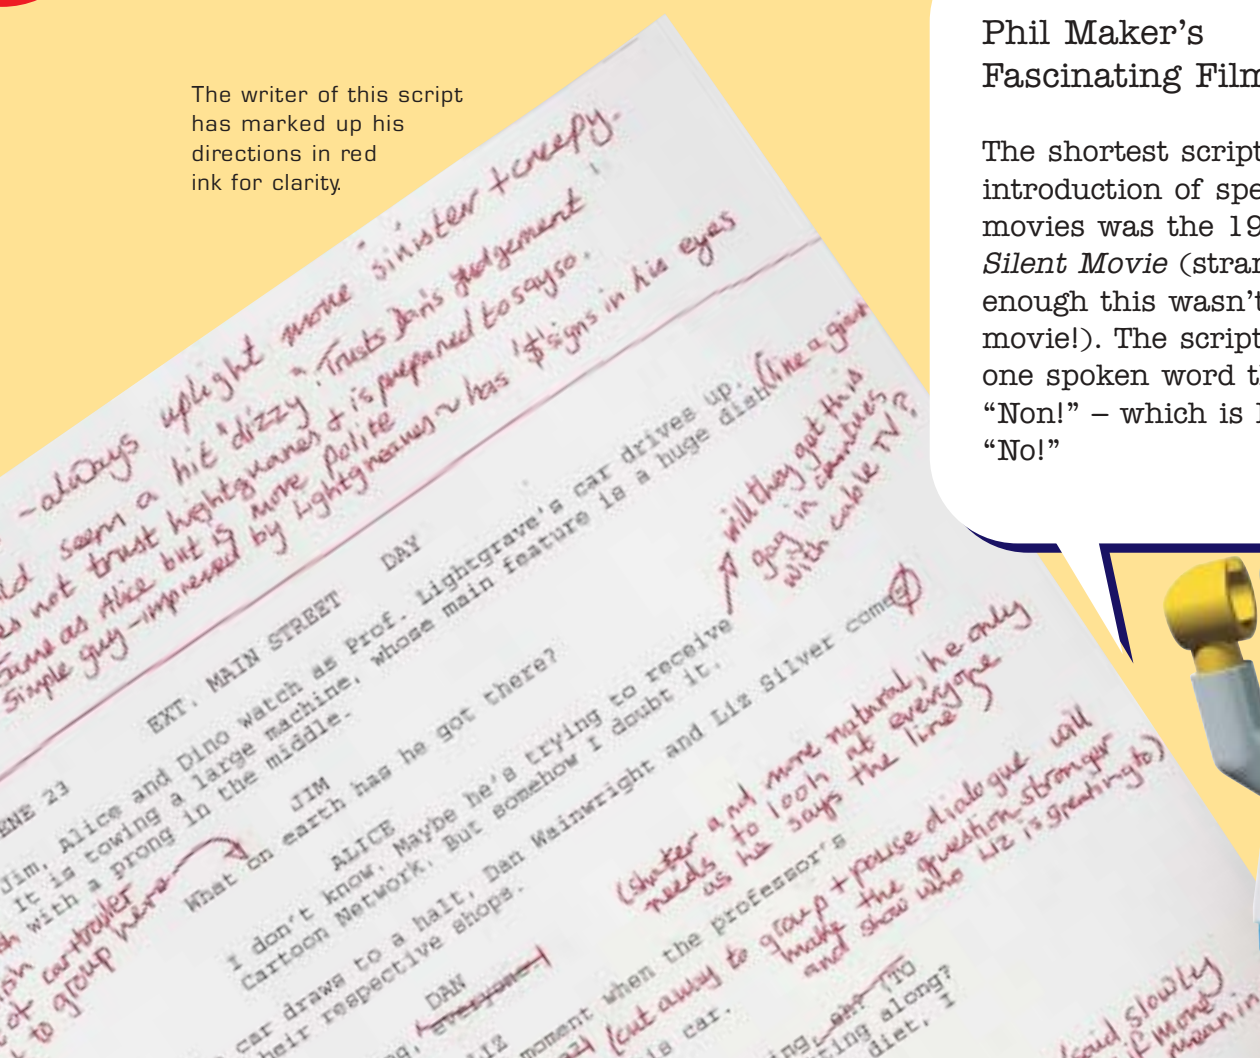 The writer of this script
has marked up his
directions in red
ink for clarity.
Phil Maker's
Fascinating Film
The shortest script
introduction of spe
movies was the 19
Silent Movie (stran
enough this wasn't
movie!). The script
one spoken word th
“Non!” – which is
“No!”
-always uplight more sinister + creepy.
seem a bit "dizzy". Trusts Dan's judgement
not trust Lightgraves + is prepared to say so.
Same as Alice but is more polite
Simple guy - impressed by Lightgraves ~ has '$' signs in his eyes
ENE 23
EXT. MAIN STREET DAY
Jim, Alice and Dino watch as Prof. Lightgrave's car drives up.
It is towing a large machine, whose main feature is a huge dish
with a prong in the middle.
(like a giant
will they get this
gag in countries
with cable TV?
car trailer
to group here
JIM
What on earth has he got there?
ALICE
I don't know. Maybe he's trying to receive
Cartoon Network. But somehow I doubt it.
car draws to a halt, Dan Wainwright and Liz Silver comes
heir respective shops.
(shorter and more natural, he only
needs to look at everyone
as he says the line)
DAN
everyone.
LIZ
moment when the professor's
is car.
(cut away to group + pause dialogue will
make the question stronger
and show who Liz is greeting to)
ing, eh? (TO
ting along?
diet, I
said slowly
more
mean in